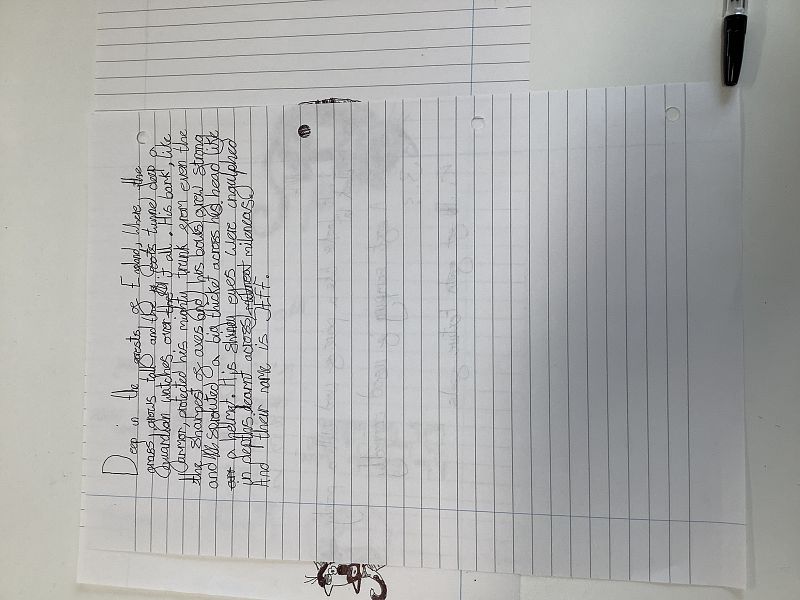 Deep in the forests of England, where the
grass grows tall and the roots tunnel deep, a
Guardian watches over it all. His bark, like
armor, protected his mighty trunk from even the
the sharpest of axes and his bows grew strong
and he sprouted a big thicket across his head like
a helmet. His shiney eyes were engulphed
in depths learnt across mileneas.
And their name is Jeff.